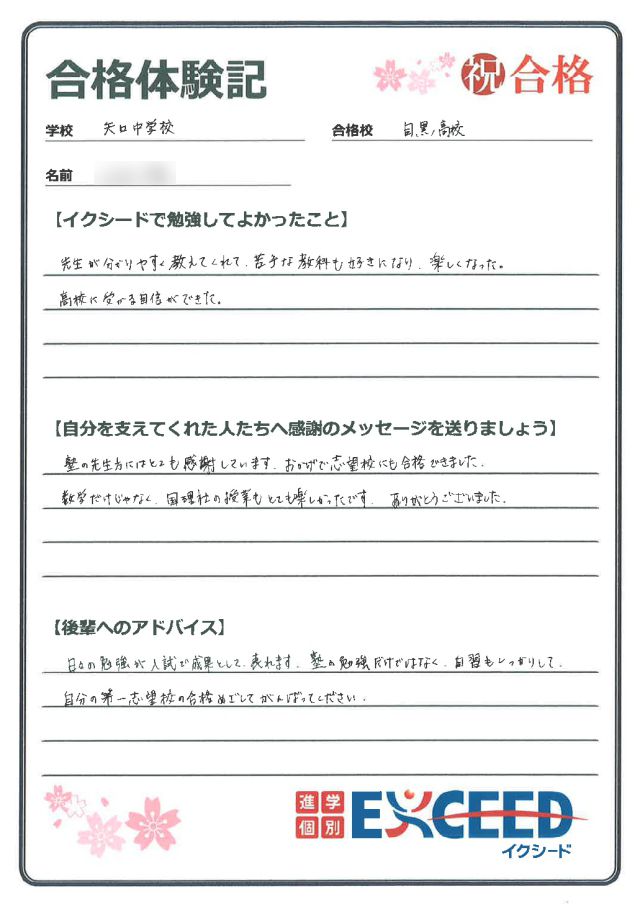 合格体験記
祝 合格
学校 矢口中学校 合格校 目黒高校
名前
【イクシードで勉強してよかったこと】
先生が分かりやすく教えてくれて、苦手な教科も好きになり、楽しくなった。
高校に受かる自信ができた。
【自分を支えてくれた人たちへ感謝のメッセージを送りましょう】
塾の先生方にはとても感謝しています。おかげで志望校にも合格できました。
数学だけじゃなく、国理社の授業もとても楽しかったです。 ありがとうございました。
【後輩へのアドバイス】
日々の勉強が入試で成果として、表れます。塾の勉強だけではなく、自習もしっかりして、
自分の第一志望校の合格めざしてがんばってください。
進学
個別
EXCEED
イクシード